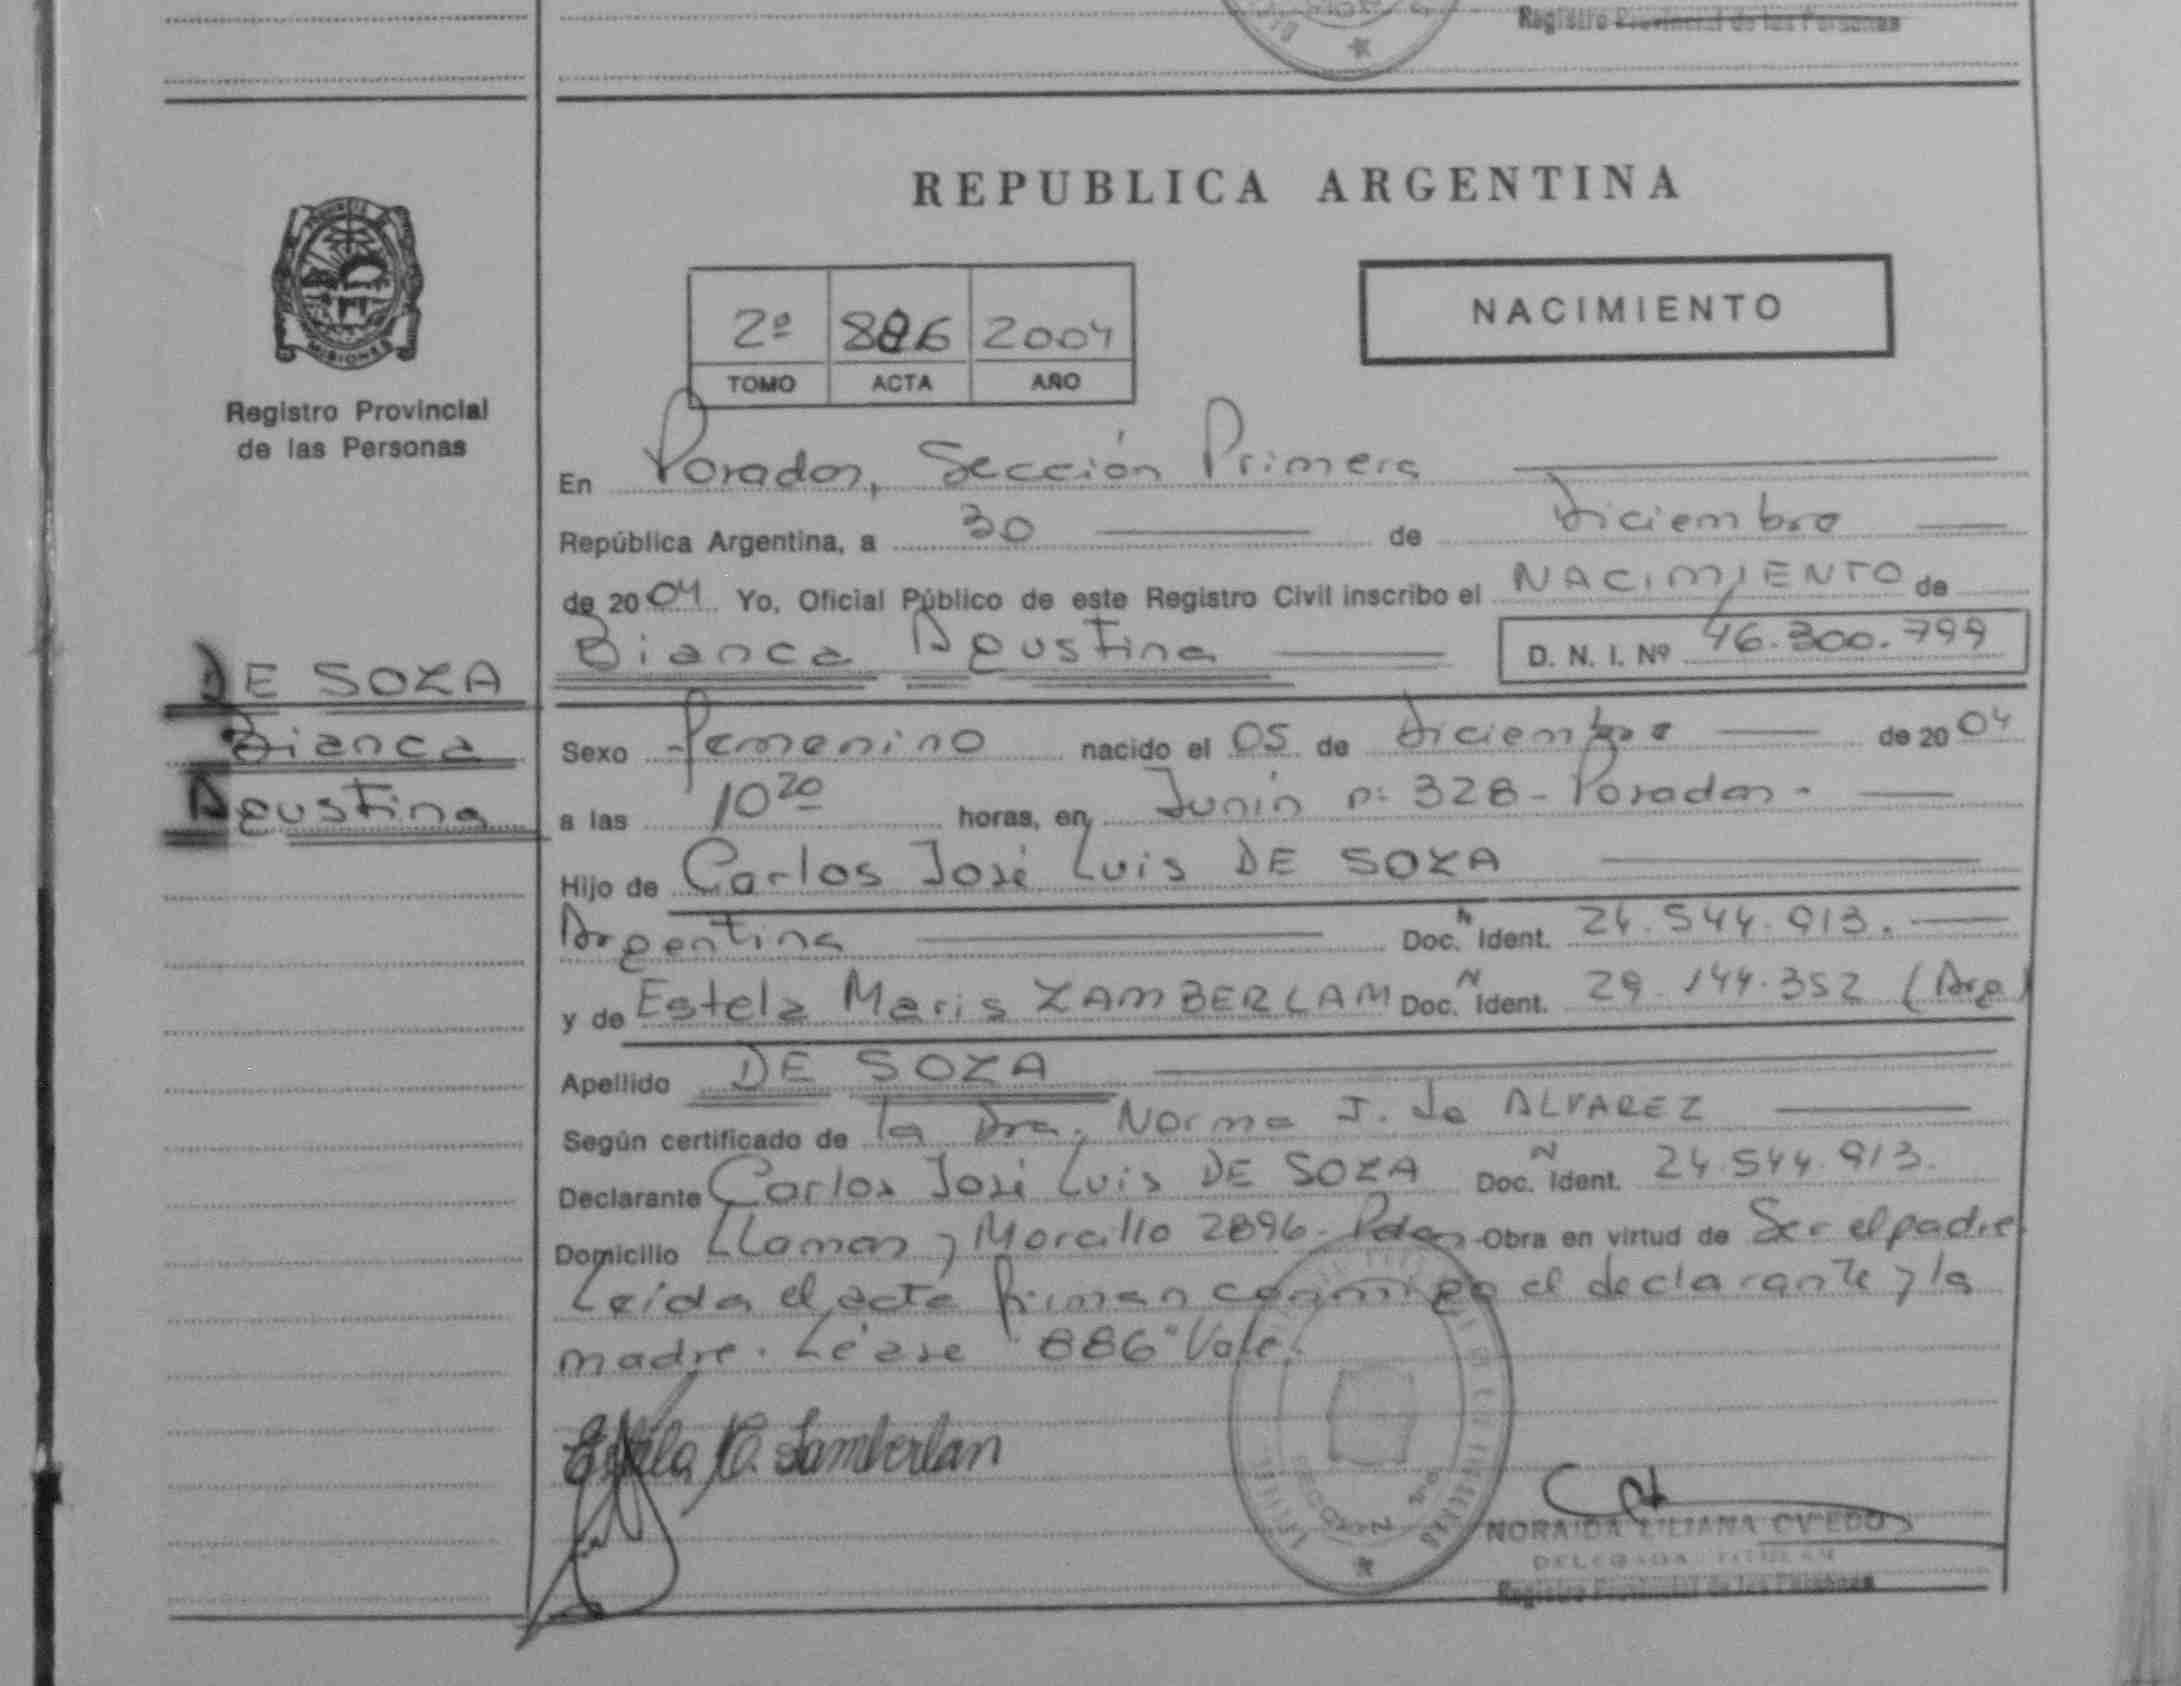 Registro Provincial de las Personas
REPUBLICA ARGENTINA
MISIONES
Registro Provincial
de las Personas
2º 886 2004
TOMO ACTA AÑO
NACIMIENTO
En Posadas, Sección Primera
República Argentina, a 30 de Diciembre
de 2004 Yo, Oficial Público de este Registro Civil inscribo el NACIMIENTO de
Bianca Agustina D. N. I. Nº 46.300.799
DE SOZA
Bianca
Agustina
Sexo Femenino nacido el 05 de Diciembre de 2004
a las 10 20 horas, en Junín nº 328 - Posadas -
Hijo de Carlos José Luis DE SOZA
Argentina Doc. N Ident. 24.544.913.
y de Estela Maris ZAMBERLAM Doc. N Ident. 29.144.352 (Arg)
Apellido DE SOZA
Según certificado de la Dra. Norma J. de ALVAREZ
Declarante Carlos José Luis DE SOZA Doc. N Ident. 24.544.913.
Domicilio Llamas y Morcillo 2896 - Pdas - Obra en virtud de Ser el padre.
Leída el acta firman conmigo el declarante y la
madre. Léase "886" Vale.
Estela M. Zamberlan
SECCION 1ra
NORAIDA LILIANA OVIEDO
DELEGADA TITULAR
Registro Provincial de las Personas